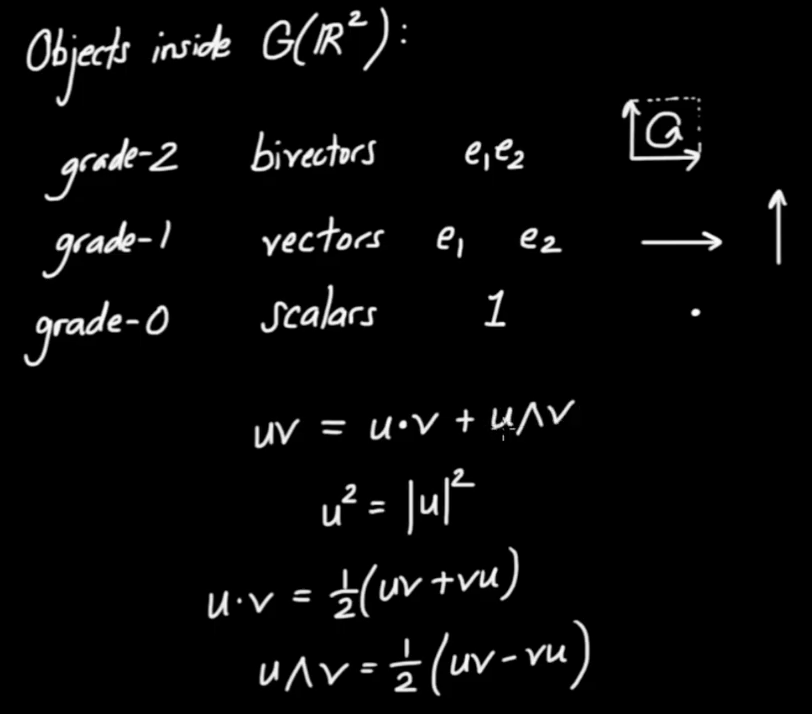 Objects inside G(ℝ²):
grade-2 bivectors e₁e₂
grade-1 vectors e₁ e₂
grade-0 scalars 1
uv = u·v + u∧v
u² = |u|²
u·v = ½(uv+vu)
u∧v = ½(uv-vu)